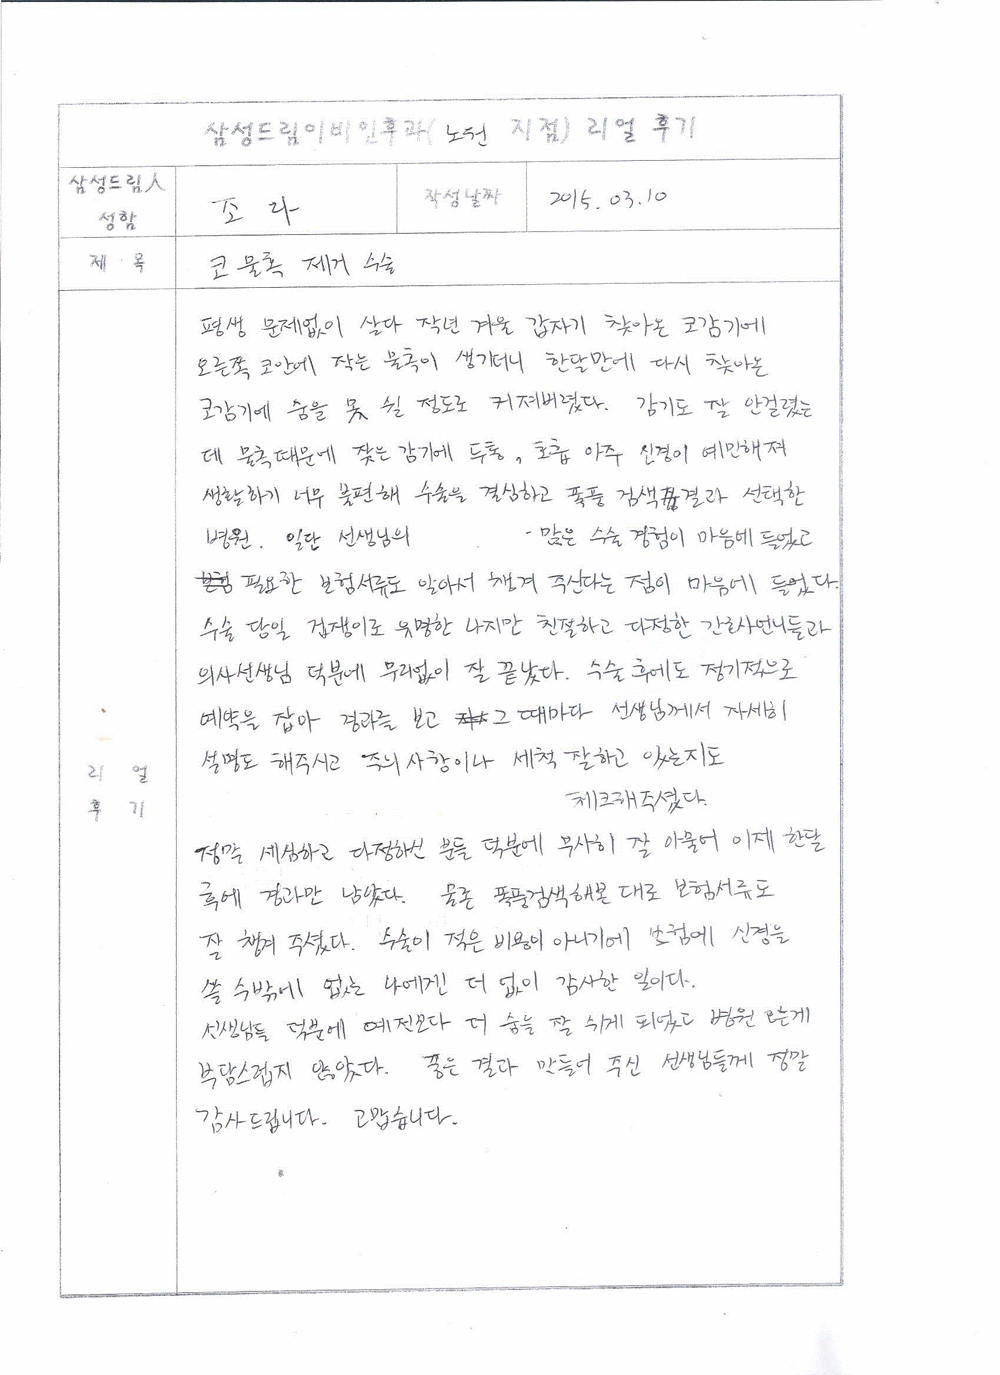 삼성드림이비인후과( 노원 지점) 리얼 후기
삼성드림人 성함
조 라
작성날짜
2015. 03. 10
제 목
코 물혹 제거 수술
리 얼 후 기
평생 문제없이 살다 작년 겨울 갑자기 찾아온 코감기에
오른쪽 코안에 작는 물혹이 생기더니 한달만에 다시 찾아온
코감기에 숨을 못 쉴 정도로 커져버렸다. 감기도 잘 안걸렸는
데 물혹때문에 잦은 감기에 두통, 호흡 아주 신경이 예민해져
생활하기 너무 불편해 수술을 결심하고 폭풍 검색 결과 선택한
병원. 일단 선생님의 많은 수술 경험이 마음에 들었고
필요한 보험서류도 알아서 챙겨 주신다는 점이 마음에 들었다.
수술 당일 겁쟁이로 유명한 나지만 친절하고 다정한 간호사언니들과
의사선생님 덕분에 무리없이 잘 끝났다. 수술 후에도 정기적으로
예약을 잡아 경과를 보고 그 때마다 선생님께서 자세히
설명도 해주시고 주의사항이나 세척 잘하고 있는지도
체크해주셨다.
정말 세심하고 다정하신 분들 덕분에 무사히 잘 아물어 이제 한달
후에 경과만 남았다. 물론 폭풍검색해본 대로 보험서류도
잘 챙겨 주셨다. 수술이 적은 비용이 아니기에 보험에 신경을
쓸 수밖에 없는 나에겐 더 없이 감사한 일이다.
선생님들 덕분에 예전보다 더 숨을 잘 쉬게 되었고 병원 오는게
부담스럽지 않았다. 좋은 결과 만들어 주신 선생님들께 정말
감사드립니다. 고맙습니다.